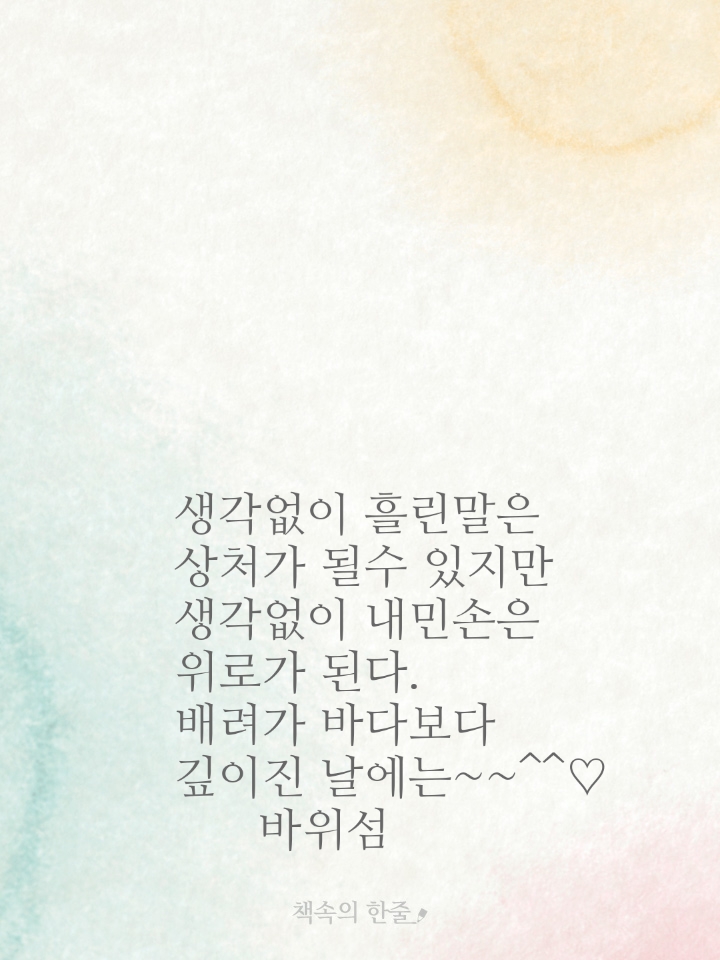 생각없이 흘린말은
상처가 될수 있지만
생각없이 내민손은
위로가 된다.
배려가 바다보다
깊이진 날에는~~^^♡
바위섬
책속의 한줄